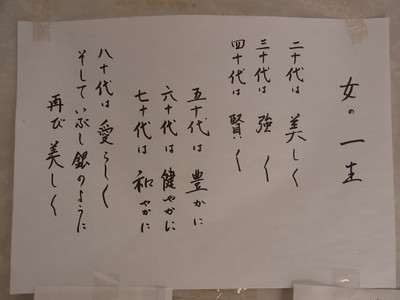 女の一生
二十代は 美しく
三十代は 強く
四十代は 賢く
五十代は 豊かに
六十代は 健やかに
七十代は 和やかに
八十代は 愛らしく
そしていぶし銀のように
再び 美しく